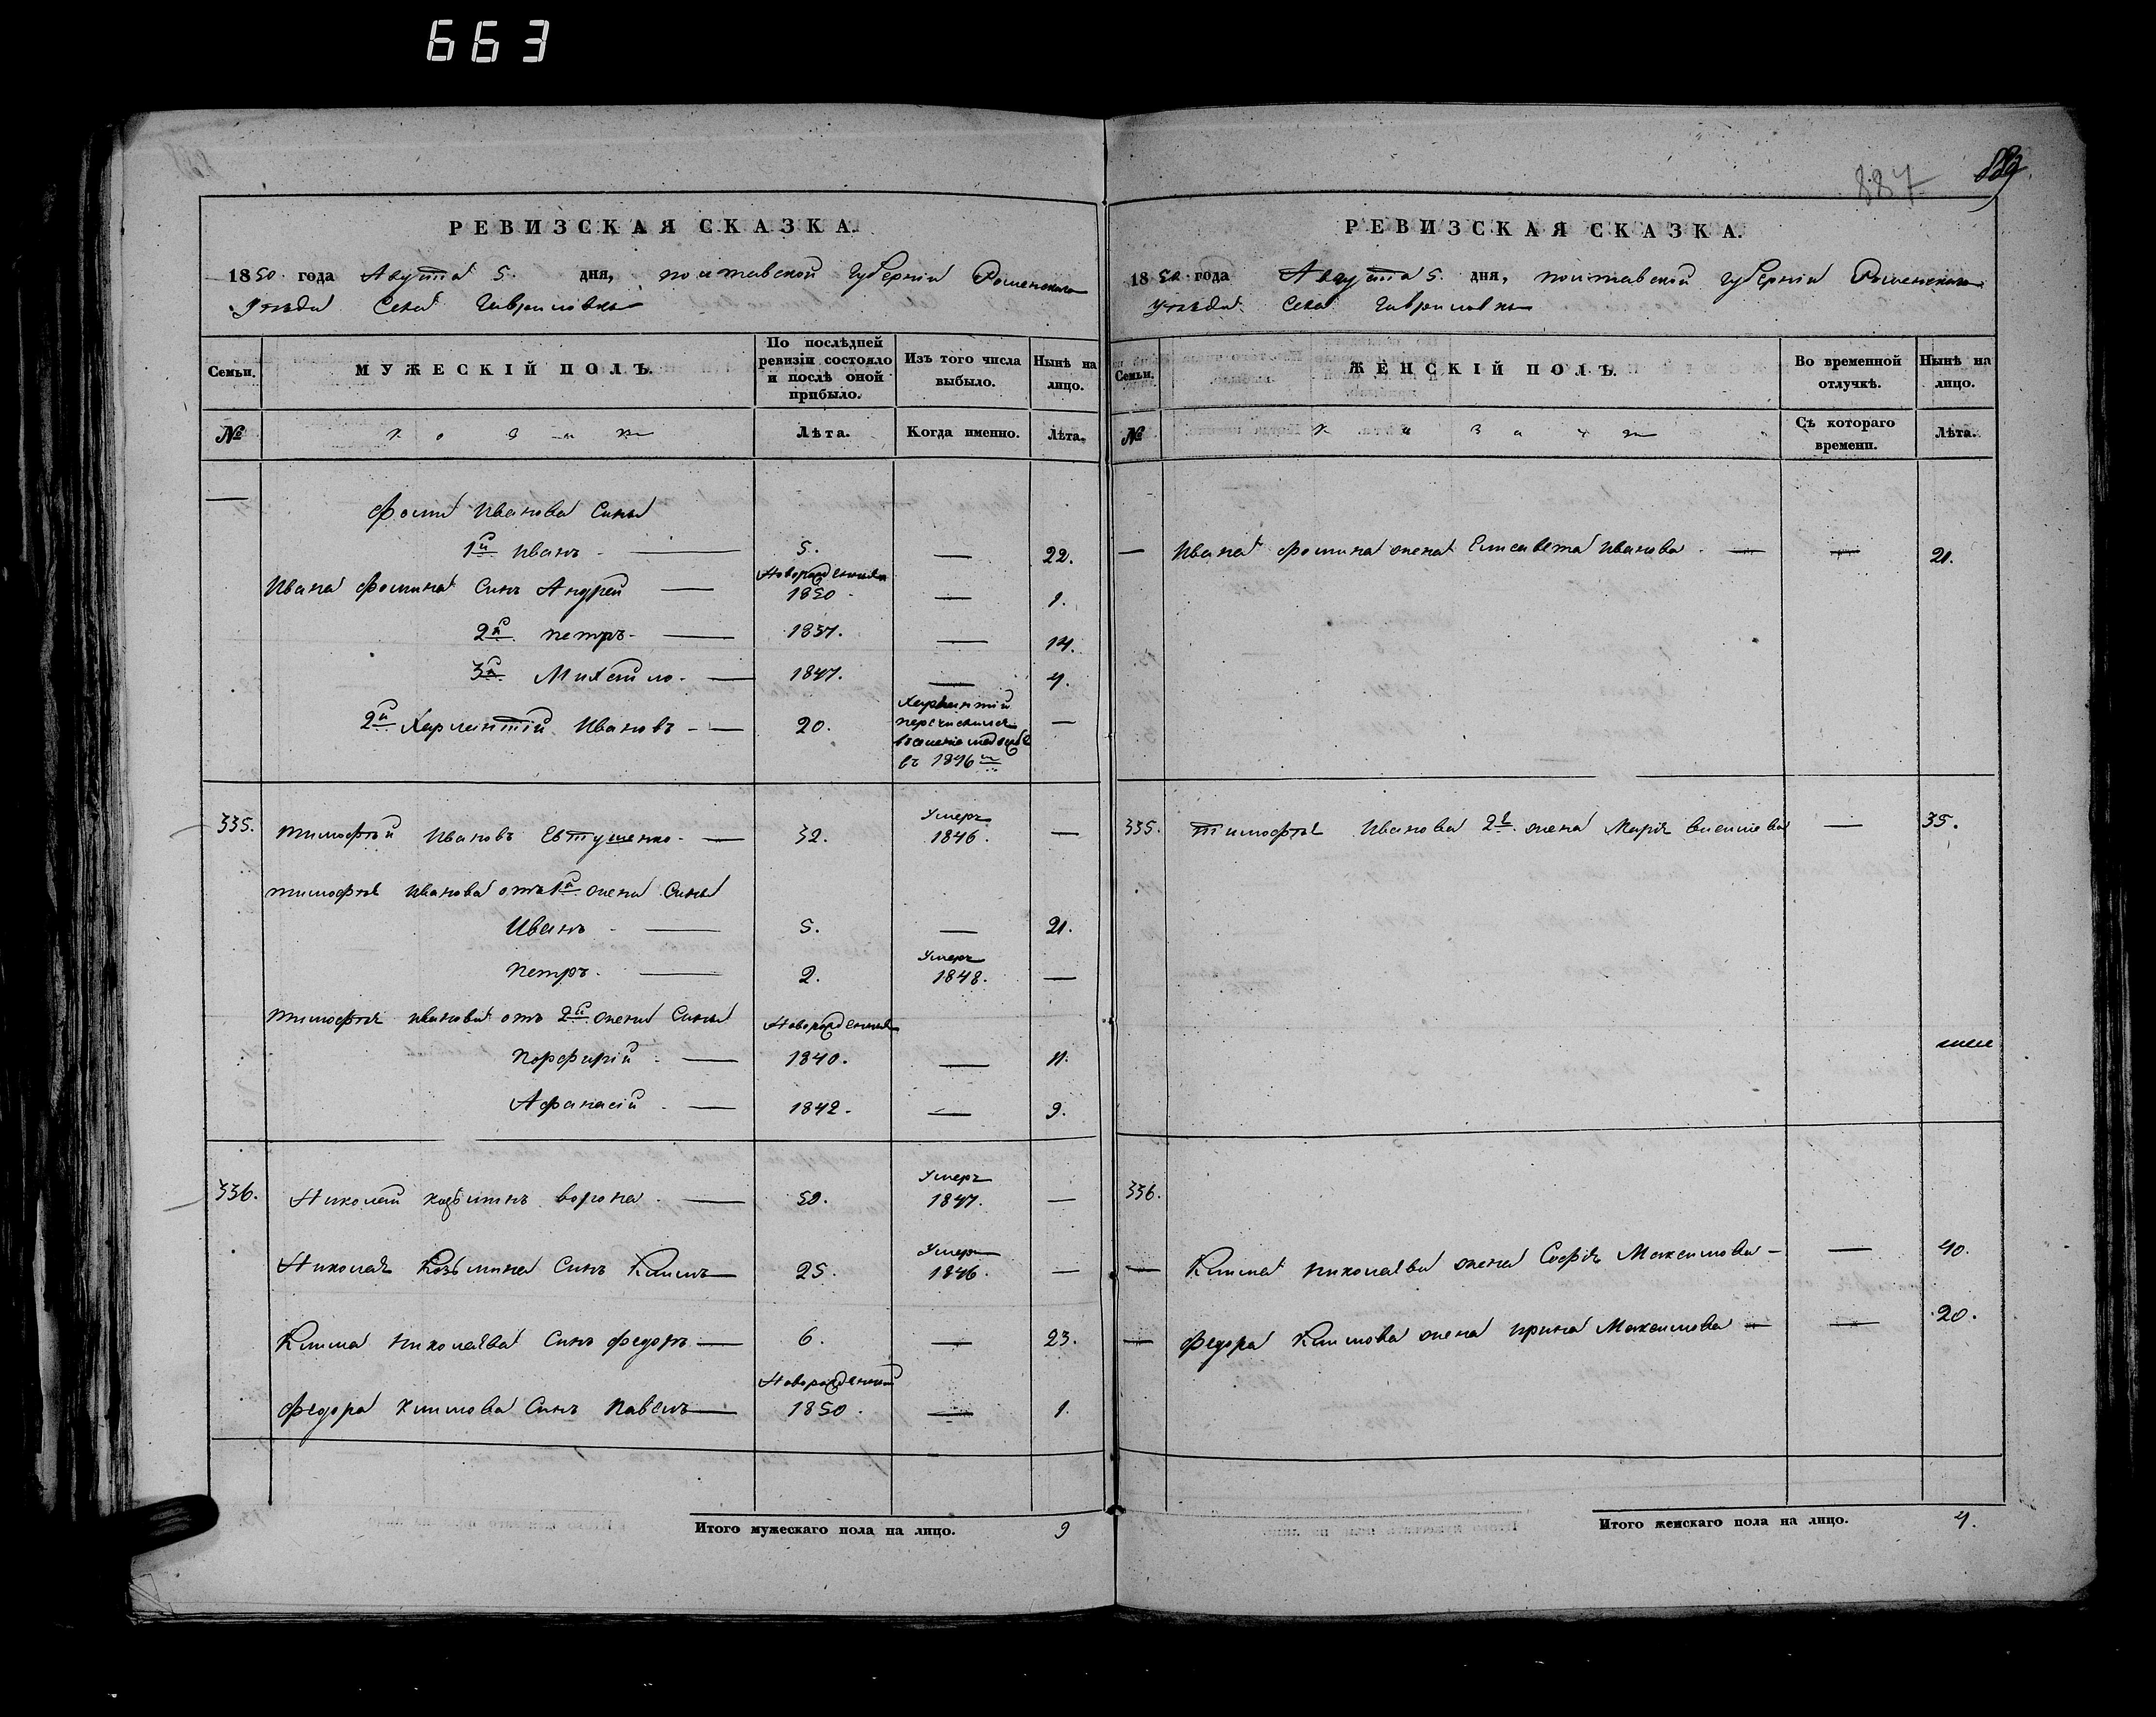 663
887
РЕВИЗСКАЯ СКАЗКА.
1850 года Августа 5. дня, полтавской губерніи Роменскаго
Уѣзда Села Гавриловки
Семьи. МУЖЕСКІЙ ПОЛЪ. По послѣдней ревизіи состояло и послѣ оной прибыло. Изъ того числа выбыло. Нынѣ на лицо.
№ Лѣта. Когда именно. Лѣта.
— Фомы Иванова Сыны
1й Иванъ — 5. — 22.
Ивана Фомина Сынъ Андрей — Новорожденный 1850 — 1.
2й петръ — 1837. — 14.
3й Михайло — 1847. — 4.
2й Харлантій Ивановъ — 20. Харлантій перечислился въ 1846 —
335. тимофѣй Ивановъ Евтушенко — 32. Умеръ 1846. —
тимофѣя Иванова отъ 1й жены Сыны
Иванъ — 5. — 21.
Петръ — 2. Умеръ 1848. —
тимофѣя иванова отъ 2й жены Сыны Новорожденные
Порфирій — 1840. — 11.
Афанасій — 1842. — 9.
336. Николай козьминъ ворона — 50. Умеръ 1847. —
Николая Козьмина Сынъ Климъ — 25. Умеръ 1846. —
Клима николаева Сынъ федоръ — 6. — 23.
федора климова Сынъ Павелъ — Новорожденный 1850. — 1.
Итого мужескаго пола на лицо. 9
РЕВИЗСКАЯ СКАЗКА.
1850 года Августа 5. дня, полтавской губерніи Роменскаго
уѣзда Села Гавриловки
Семьи. ЖЕНСКІЙ ПОЛЪ. Во временной отлучкѣ. Нынѣ на лицо.
№ Съ котораго времени. Лѣта.
— Ивана фомина жена Елисавета Иванова — — 21.
335. тимофѣя Иванова 2я жена Марія — 35.
336.
— Клима николаева жена Софія Максимова — — 40.
— федора Климова жена ирина Максимова — — 20.
Итого женскаго пола на лицо. 4.